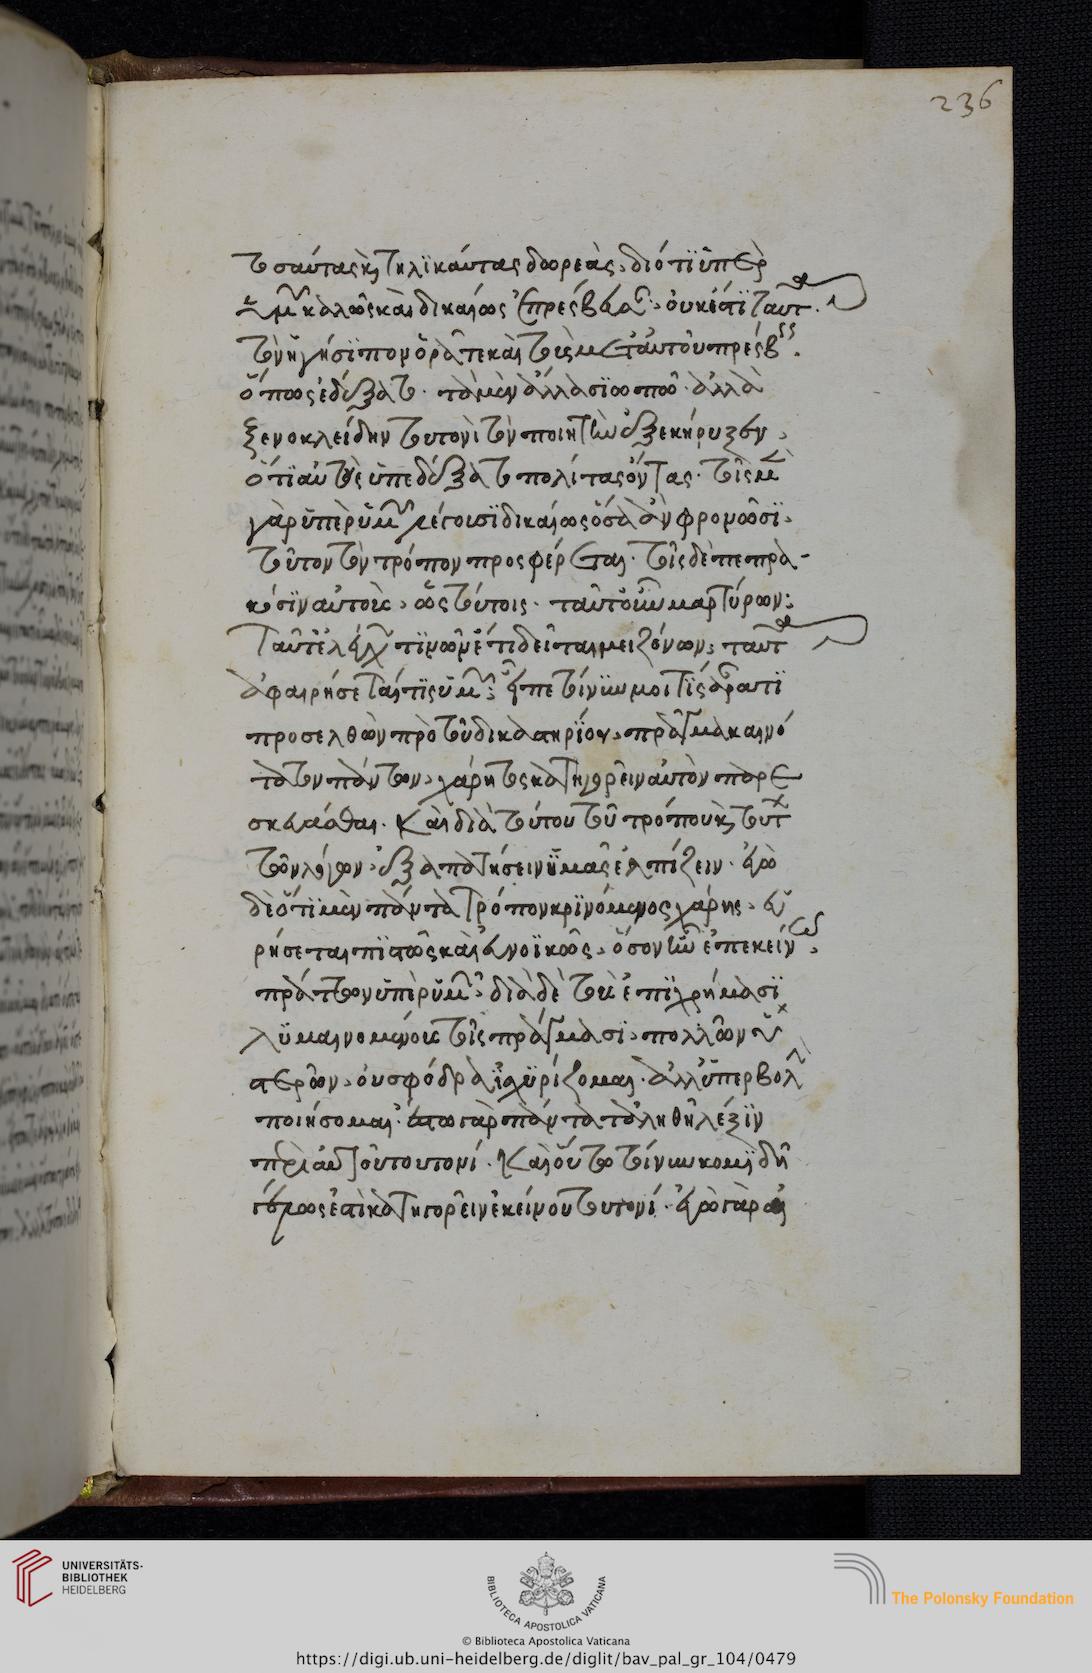 236
τοσαύτας κ(αὶ) τηλικαύτας δωρεὰς, διότι ὑπὲρ
ὑμῶν καλῶς καὶ δικαίως ἐπρέσβευσα. οὐκ ἔστι ταῦτ.
τὸν ἡγήσιππον ὁρᾶτε καὶ τοὺς μετ αὐτοῦ πρέσβεις.
ὅπως ἐδέξατο. τὰ μὲν ἄλλα σιωπῶ. ἀλλὰ
ξενοκλείδην τουτονὶ τὸν ποιητὴν ἐξεκήρυξεν,
ὅτι αὐτοὺς ὑπεδέξατο πολίτας ὄντας. τοῖς μὲν
γὰρ ὑπὲρ ὑμῶν λέγουσι δικαίως ὅσα ἂν φρονῶσι,
τοῦτον τὸν τρόπον προσφέρεται. τοῖς δὲ πεπρα-
κόσιν αὑτοὺς, ὡς τούτοις. ταῦτ οὖν μαρτύρων:
ταῦτ ἐλέγχων τινῶν ἔτι δεῖται μειζόνων, ταῦτ
ἀφαιρήσεταί τις ὑμῶν; εἶπε τοίνυν μοί τις ἄρτι
προσελθὼν πρὸ τοῦ δικαστηρίου, πρᾶγμα καινό
τατον πάντων, χάρητος κατηγορεῖν αὐτὸν παρε
σκευάσθαι. καὶ διὰ τούτου τοῦ τρόπου κ(αὶ) τούτων
τῶν λόγων, ἐξαπατήσειν ὑμᾶς ἐλπίζειν. ἐγὼ
δὲ ὅτι μὲν πάντα τρόπον κρινόμενος χάρης, εὕ
ρηται πιστῶς καὶ εὐνοϊκῶς, ὅσον ἦν ἐπ ἐκείνῳ,
πράττων ὑπὲρ ὑμῶν, διὰ δὲ τοὺς ἐπὶ χρήμασι
λυμαινομένους τοῖς πράγμασι, πολλῶν ὑ
στερῶν, οὐ σφόδρα ἰσχυρίζομαι. ἀλλ ὑπερβολὴν
ποιήσομαι. ἔστω γὰρ πάντα τἀληθῆ λέξειν
περὶ αὐτοῦ τουτονί. καὶ οὕτω τοίνυν κομιδῇ
γέλως ἐστὶ κατηγορεῖν ἐκείνου τουτονί. ἐγὼ γὰρ αἰ
UNIVERSITÄTS-
BIBLIOTHEK
HEIDELBERG
BIBLIOTECA APOSTOLICA VATICANA
The Polonsky Foundation
© Biblioteca Apostolica Vaticana
https://digi.ub.uni-heidelberg.de/diglit/bav_pal_gr_104/0479